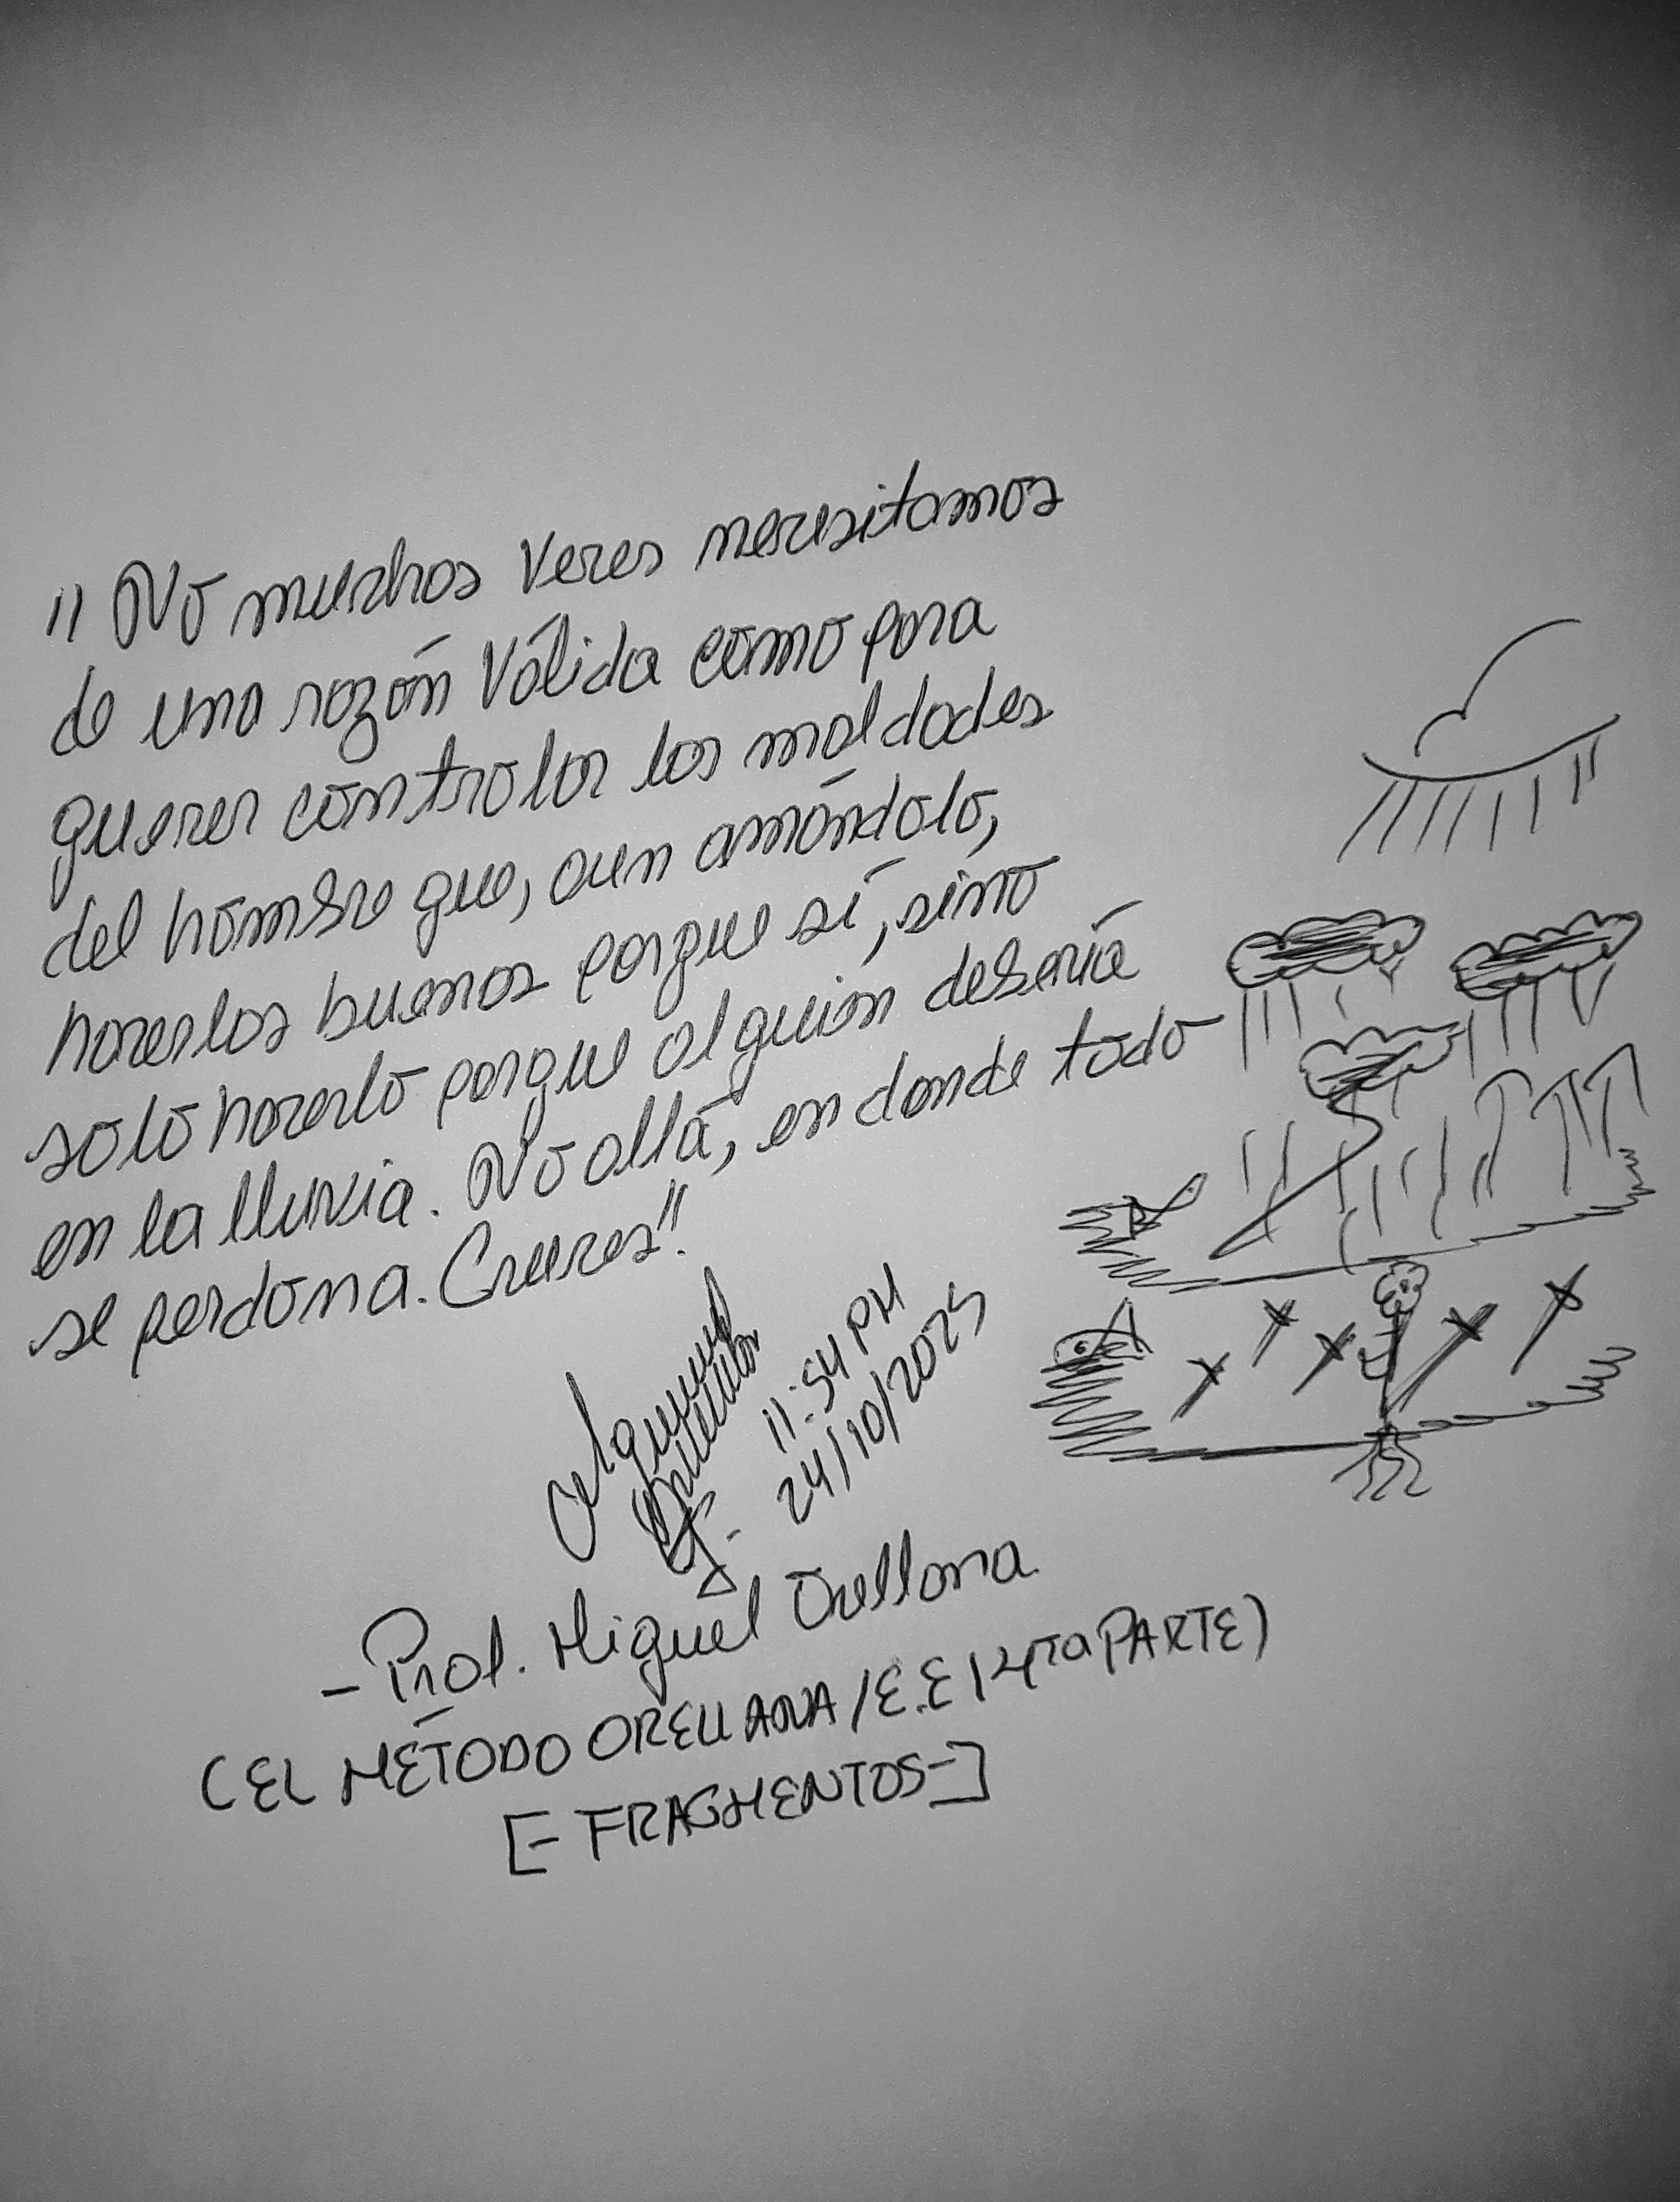 "No muchas veces necesitamos
de una razón válida como para
querer controlar las maldades
del hombre que, aun amándolo,
hacerlas buenas porque sí, sino
solo hacerlo porque alguien debería
en la lluvia. No allá, en donde todo
se perdona. Cruces".
11:54 PM
24/10/2025
- Prof. Miguel Orellana
(EL MÉTODO ORELLANA / E.E / 4ta PARTE)
[- FRAGMENTOS -]